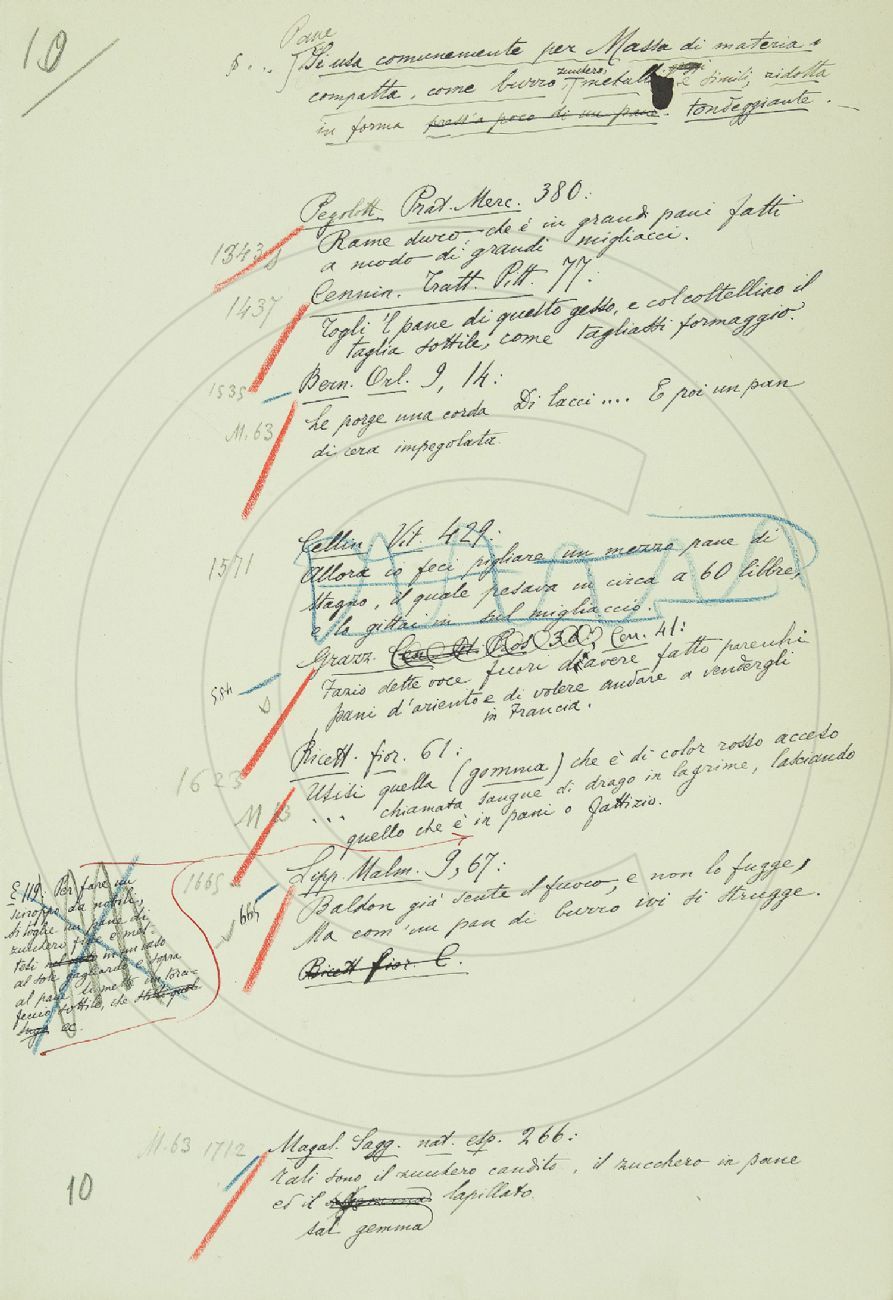 10
Pane
§ ... Si usa comunemente per Massa di materia
compatta, come burro, zucchero, metalli e simili, ridotta
in forma press'a poco di un pane. tondeggiante.
Pegolott. Prat. Merc. 380:
1343
Rame duro che è in grandi pani fatti
a modo di grandi migliacci.
Cennin. Tratt. Pitt. 77:
1437
Togli 'l pane di questo gesso, e col coltellino il
taglia sottile, come tagliassi formaggio.
1535
Bern. Orl. 9, 14:
M. 63
he porge una corda Di lacci .... E poi un pan
di cera impegolata.
Cellin. Vit. 429:
1571
Allora io feci pigliare un mezzo pane di
stagno, il quale pesava in circa a 60 libbre,
e lo gittai in sul migliaccio.
Grazz. Cen. 41:
Fazio dette voce fuori d'avere fatto parecchi
pani d'ariento e di volere andare a vendergli
in Francia.
Ricett. fior. 61:
1623
Usisi quella (gomma) che è di color rosso acceso
... chiamata sangue di drago in lagrime, lasciando
M 63
quello che è in pani o fattizio.
Lipp. Malm. 9, 67:
1665
Baldon già sente il fuoco, e non lo fugge,
665
Ma com'un pan di burro ivi si strugge.
Ricett fior. C.
E 119. Per fare un
siroppo da nobili,
si toglie un pane di
zucchero fine e met-
tesi in un vaso
al sole gagliardo e sopra
al pane si mette un
sottile, che
ec.
M. 63 1712
Magal. Sagg. nat. esp. 266:
Tali sono il zucchero candito, il zucchero in pane
10
ed il lapillato
sal gemma